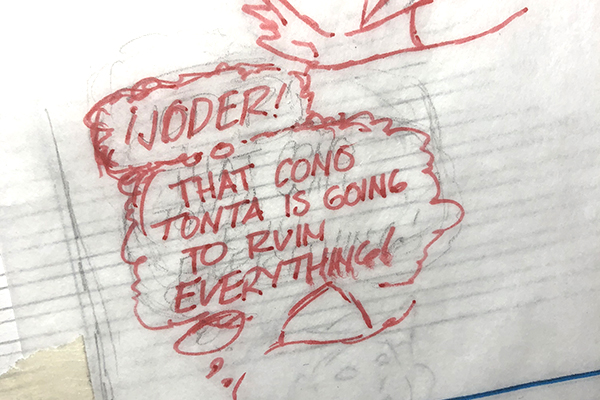 ¡JODER!
THAT CONO
TONTA IS GOING
TO RUIN
EVERYTHING!